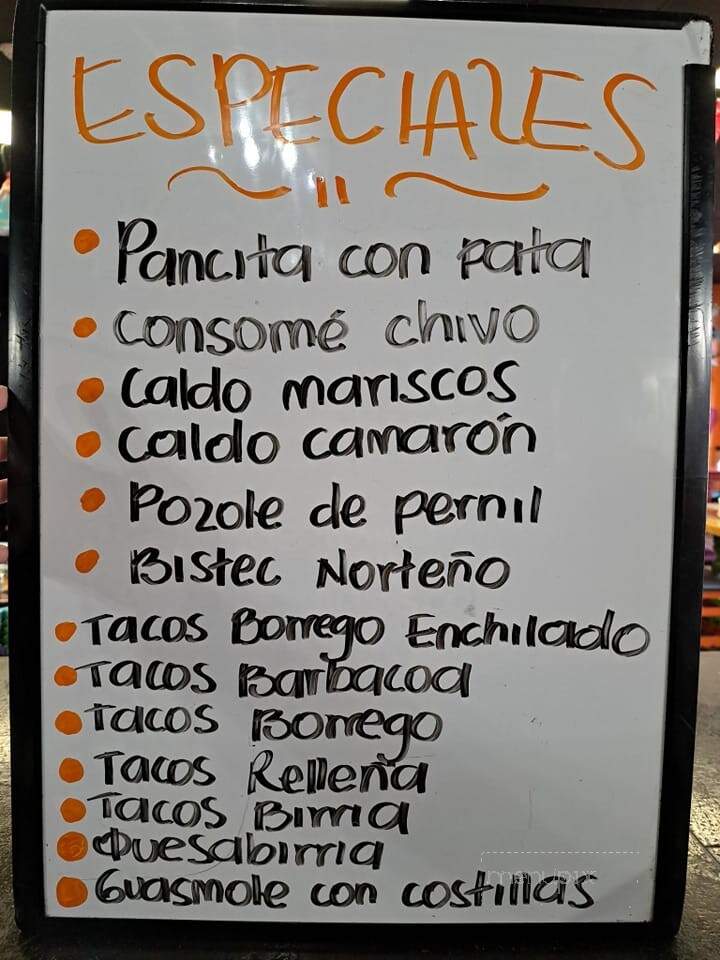 ESPECIALES
Pancita con pata
Consomé chivo
Caldo mariscos
Caldo camarón
Pozole de pernil
Bistec Norteño
Tacos Borrego Enchilado
Tacos Barbacoa
Tacos Borrego
Tacos Relleña
Tacos Birria
Quesabirria
Guasmole con costillas
menupix